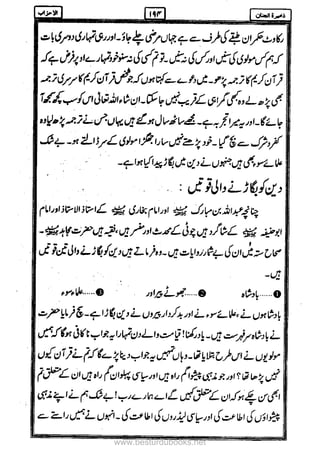 ذخيرة الجنان ۱۹۳ الاحزاب
رکاوٹ حکمران طبقے کی طرف سے ہے جہاں مرضی چلے جاؤ۔ اور رہی تمہاری دوسری بات
کہ ہم کس مولوی کی سنیں اور کس کی نہ سنیں۔ تو تم کسی کی نہ سنو خود تمہارے اوپر فرض ہے کہ
قرآن کریم کا ترجمہ پڑھو۔ میں دعوے سے کہتا ہوں کہ جو شخص قرآن کریم کا سرسری ترجمہ
بھی پڑھ لے وہ بھی گمراہی کے قریب نہیں جا سکتا۔ ان شاء اللہ تعالیٰ اس کو سب کچھ سمجھ آ
جائے گا۔ اور یہ میرا تجربہ ہے۔ مجھے ساٹھ سال ہو گئے ہیں یہاں جس نے ترجمہ پڑھ لیا وہ
کفر و شرک سے بچ گیا۔ خود پڑھتے نہیں سارا جھگڑا مولوی کے سر ڈالتے ہو۔ بے شک
علمائے سوء بھی ہیں جنہوں نے دین میں بگاڑ پیدا کیا ہوا ہے۔
دین کو بگاڑنے والی قوتیں :
چنانچہ عبداللہ بن مبارک اور امام بخاری کے استاذ الاستاذ اور امام
ابوحنیفہ کے شاگرد ہیں چوٹی کے محدث اور مفسر ہیں، فقیہ ہیں حضرت مجاہد۔
صحاح ستہ میں ان کی بے شمار روایات ہیں۔ وہ فرماتے ہیں دین کو بگاڑنے والی تین قوتیں
ہیں۔
۱......بادشاہ ۲......جھوٹے پیر اور ۳......علماء سوء
بادشاہوں نے، علمائے سوء نے اور بدکردار پیروں نے دین بگاڑا ہے۔ سچ فرمایا حضرت
نے بادشاہ سرفہرست ہیں۔ یاد رکھنا! قیامت والے دن تمہارا یہ جواب ناکافی ہو گا کہ ہمیں
مولویوں نے اس طرح بتلایا تھا۔ وہاں تمہیں یہ جواب دینا پڑے گا کہ تم نے قرآن کیوں
نہیں پڑھا تھا؟ اور جو مذہبی پیشوا گمراہ ہیں اور سیاسی پہلوان گمراہ ہیں ان کے متعلق تم
ابھی سن چکے ہو کہ ان کے متعلق کہیں گے اے ہمارے رب! بے شک ہم نے اپنے مذہبی
پیشواؤں کی اطاعت کی اور سیاسی لیڈروں کی اطاعت کی۔ انہوں نے ہمیں راستے سے
www.besturdubooks.net